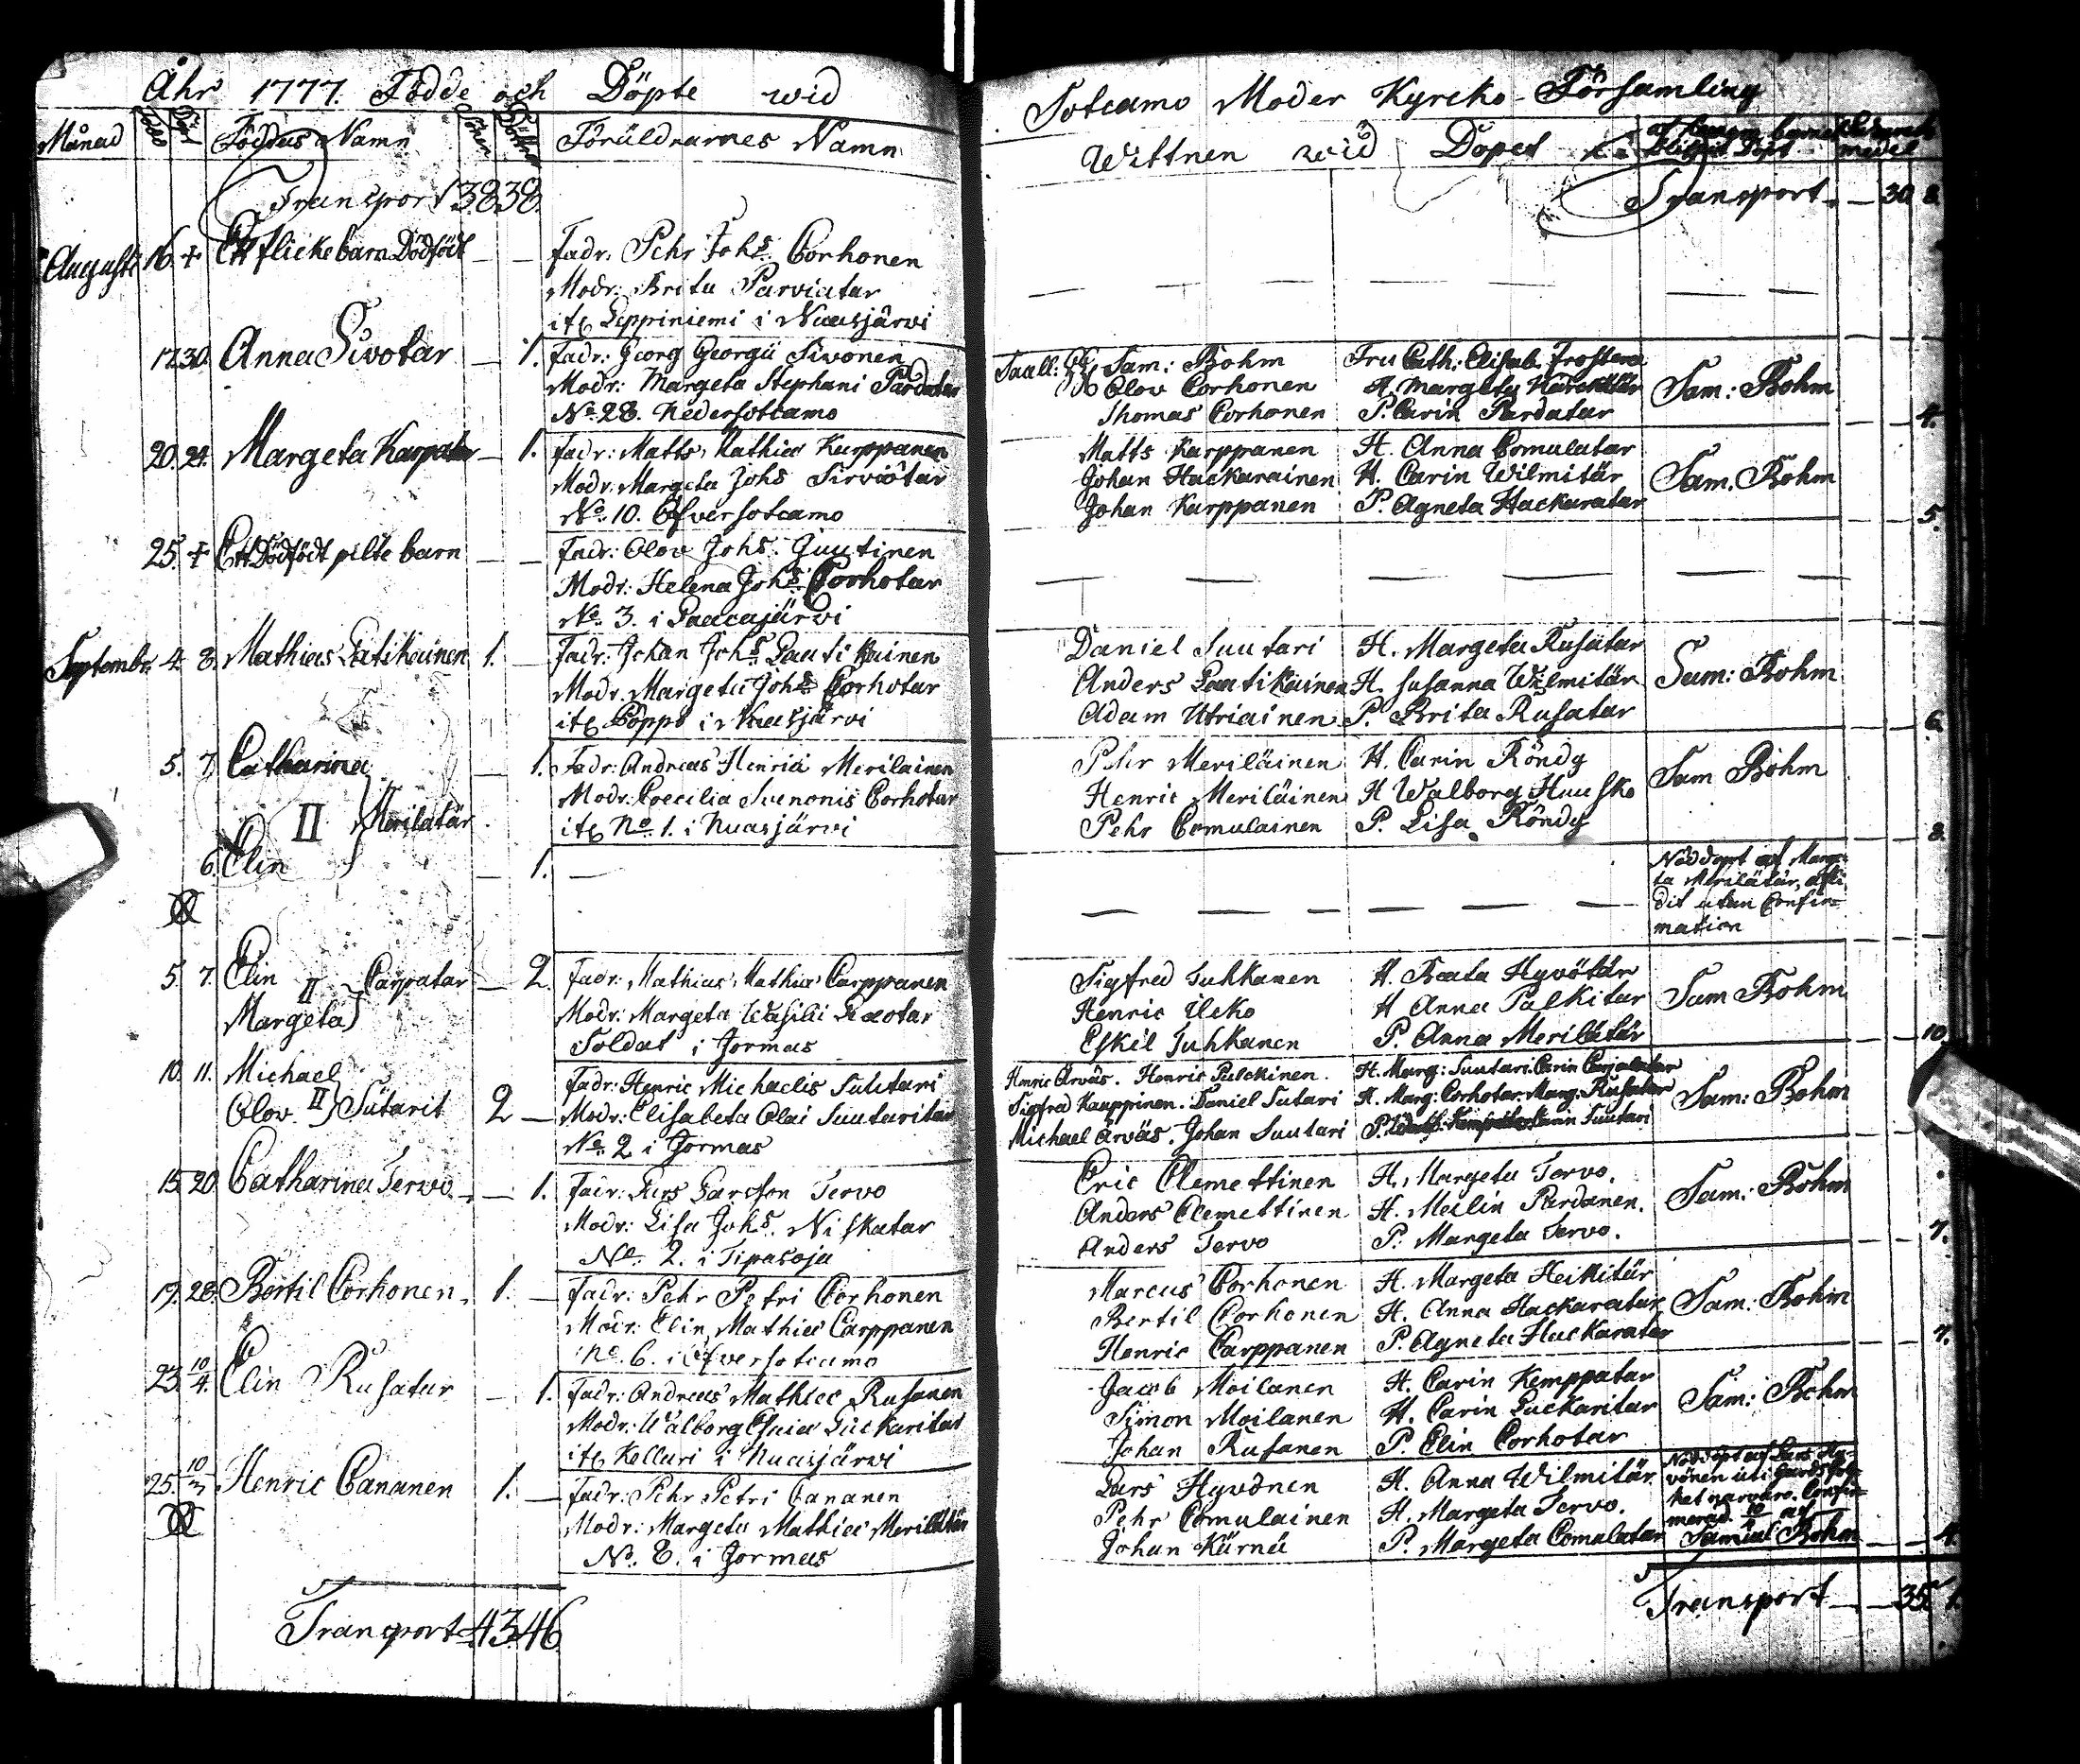 Åhr 1777. Födde och Döpte wid
Månad Född Döpt Föddas Namn Söner Döttrar Föräldrarnes Namn
Transport 38 38.
Augusti 16. + Ett flickebarn Dödfödt — — Fadr: Pehr Johs. Corhonen
Modr: Brita Parviatar
it Leppiniemi i Nuasjärvi
17. 30. Anna Sivotar — 1. Fadr: Georg Georgii Sivonen
Modr: Margeta Stephani Pardatar
No. 28. Nedersotcamo
20. 24. Margeta Karpatar — 1. Fadr: Matts Mathiæ Karppanen
Modr: Margeta Johs Sirviötar
No. 10. Öfversotcamo
25. + Ett Dödfödt pilte barn — — Fadr: Olov Johs. Juutinen
Modr: Helena Johs. Corhotar
No. 3. i
Septembr. 4. 8. Mathias Latikainen 1. — Fadr: Johan Johs Lautikainen
Modr. Margeta Johs Corhotar
it i Nuasjärvi
5. 7. Catharina — 1. Fadr: Andreas Henrici Merilainen
Modr: Coecilia Svenonis Corhotar
II Merilatär it No. 1. i Nuasjärvi
6. Elin — 1. —
5. 7. Elin II Carpatar — 2. Fadr: Mathias Mathiæ Carppanen
Margeta Modr: Margeta
Soldat i Jormas
10. 11. Michael Fadr: Henric Michaelis Suutari
Olov II Sutarit 2 — Modr: Elisabeta Olai Suutaritar
No. 2 i Jormas
15. 20. Catharina Tervo — 1. Fadr: Lars Larsson Tervo
Modr: Lisa Johs. Niskatar
No. 2. i Tipasoja
19. 28. Bertil Corhonen 1. — Fadr: Pehr Petri Corhonen
Modr: Elin Mathiæ Carppanen
No. 6. i Öfversotcamo
23. 10/4. Elin Rusatar — 1. Fadr: Andreas Mathiæ Rusanen
Modr: Walborg
it Kellari i Nuasjärvi
25. 10/3 Henric Cananen 1. — Fadr: Pehr Petri Cananen
Modr: Margeta Mathiæ Merilätär
No. 8. i Jormas
Transport 43 46
Sotcamo Moder Kyrcko-Församling
Wittnen wid Dopet
Transport — 30 8
Sam: Bohm Fru Cath: Elisab. Frosterus
Olov Corhonen H. Margeta Sam: Bohm
Thomas Corhonen P. Carin Pardatar 4.
Matts Karppanen H. Anna Comulatar
Johan Hackarainen H. Carin Wilmitär Sam. Bohm
Johan Karppanen P. Agneta Hackaratar 5.
Daniel Suutari H. Margeta Rusatar
Anders Lautikainen H. Susanna Wilmitär Sam: Bohm
Adam Utriainen P. Brita Rusatar 6
Pehr Meriläinen H. Carin Röndy
Henric Meriläinen H Walborg Huusko Sam Bohm
Pehr Comulainen P. Lisa Röndy 8.
Nöddöpt af Marge-
ta Merilätär, afli
dit utan Confir-
mation
Sigfred Tuhkanen H. Beata Hyvötär
Henric Ilcko H Anna Palkitar Sam Bohm
Eskil Tuhkanen P. Anna Merilätär 10.
Henric Ärväs. Henric Pulckinen. H. Marg: Suutari. Carin
Sigfred Kauppinen. Daniel Sutari H. Marg: Corhotar. Marg: Rusatar Sam: Bohm
Michael Ärväs. Johan Suutari P. Carin Suutari
Eric Clemettinen H. Margeta Tervo.
Anders Clemettinen H. Meilin Pardanen. Sam: Bohm
Anders Tervo P: Margeta Tervo. 7.
Marcus Corhonen H. Margeta Heikitär
Bertil Corhonen H. Anna Hackaratar Sam: Bohm
Henric Carppanen P. Agneta Hackaratar 7.
Jacob Moilanen H. Carin Kemppatar
Simon Moilanen H. Carin Luckaritar Sam: Bohm
Johan Rusanen P. Elin Corhotar
Lars Hyvönen H. Anna Wilmitär Nöddöpt af Lars Hy-
vönen uti Gårdsfol-
Pehr Comulainen H. Margeta Tervo. ket närvaro. Confir-
merad 10/4 af
Johan Kärnä P. Margeta Comulatar Samuel Bohm 4.
Transport — 35. 1.